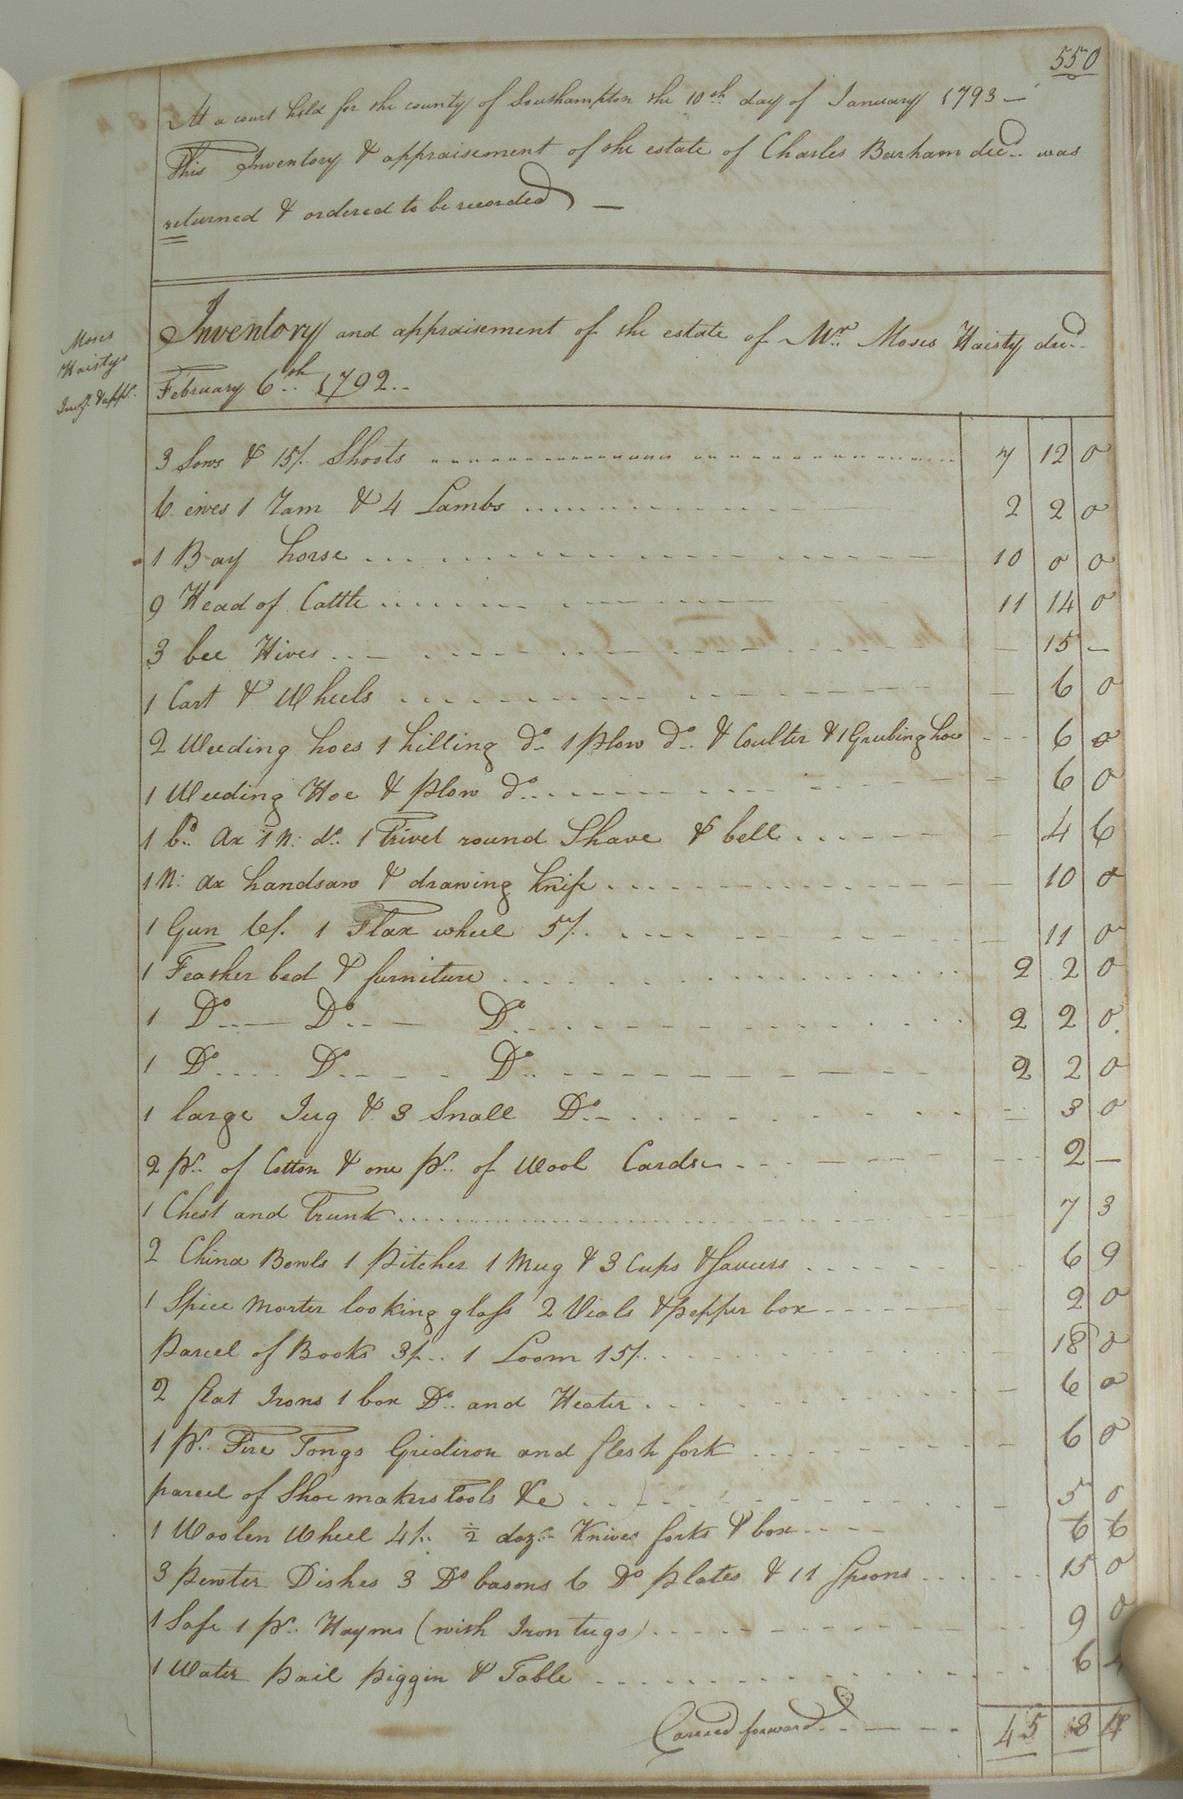 550
At a court held for the county of Southampton the 10th day of January 1793 —
This Inventory & appraisement of the estate of Charles Barham decd.. was
returned & ordered to be recorded —
Moses
Haistys
Invy. & appt.
Inventory and appraisement of the estate of Mr.. Moses Haisty decd..
February 6..th 1792..
3 Sows & 15/. Shoots 7 12 0
6 ewes 1 Ram & 4 Lambs 2 2 0
1 Bay horse 10 0 0
9 Head of Cattle 11 14 0
3 bee Hives — 15 —
1 Cart & Wheels — 6 0
2 Weeding hoes 1 hilling do.. 1 plow do.. & Coulter & 1 Grubing hoe 6 0
1 Weeding Hoe & plow do. — 6 0
1 bd.. ax 1 N: do.. 1 Trivet round Shave & bell — 4 6
1 N: ax handsaw & drawing knife — 10 0
1 Gun 6/. 1 Flax wheel 5/. — 11 0
1 Feather bed & furniture 2 2 0
1 Do.. — Do.. — Do 2 2 0
1 Do Do Do 2 2 0
1 large Jug & 3 Small Do.. — 3 0
2 pr.. of Cotton & one pr.. of Wool Cards 2 —
1 Chest and Trunk 7 3
2 China Bowls 1 pitcher 1 Mug & 3 Cups & Saucers 6 9
1 Spice Morter looking glass 2 Vials & pepper box 2 0
parcel of Books 3/.. 1 Loom 15/. 18 0
2 flat Irons 1 box Do.. and Heater 6 0
1 pr.. Fire Tongs Gridiron and flesh fork 6 0
parcel of Shoe makers Tools &c 5 0
1 Woolen Wheel 4/. ½ doz.. Knives forks & box 6 6
3 pewter Dishes 3 Do basons 6 Do plates & 11 Spoons 15 0
1 Safe 1 pr.. Hayms (with Iron tugs) 9 0
1 Water pail piggin & Table 6
Carried forward 45 18 4